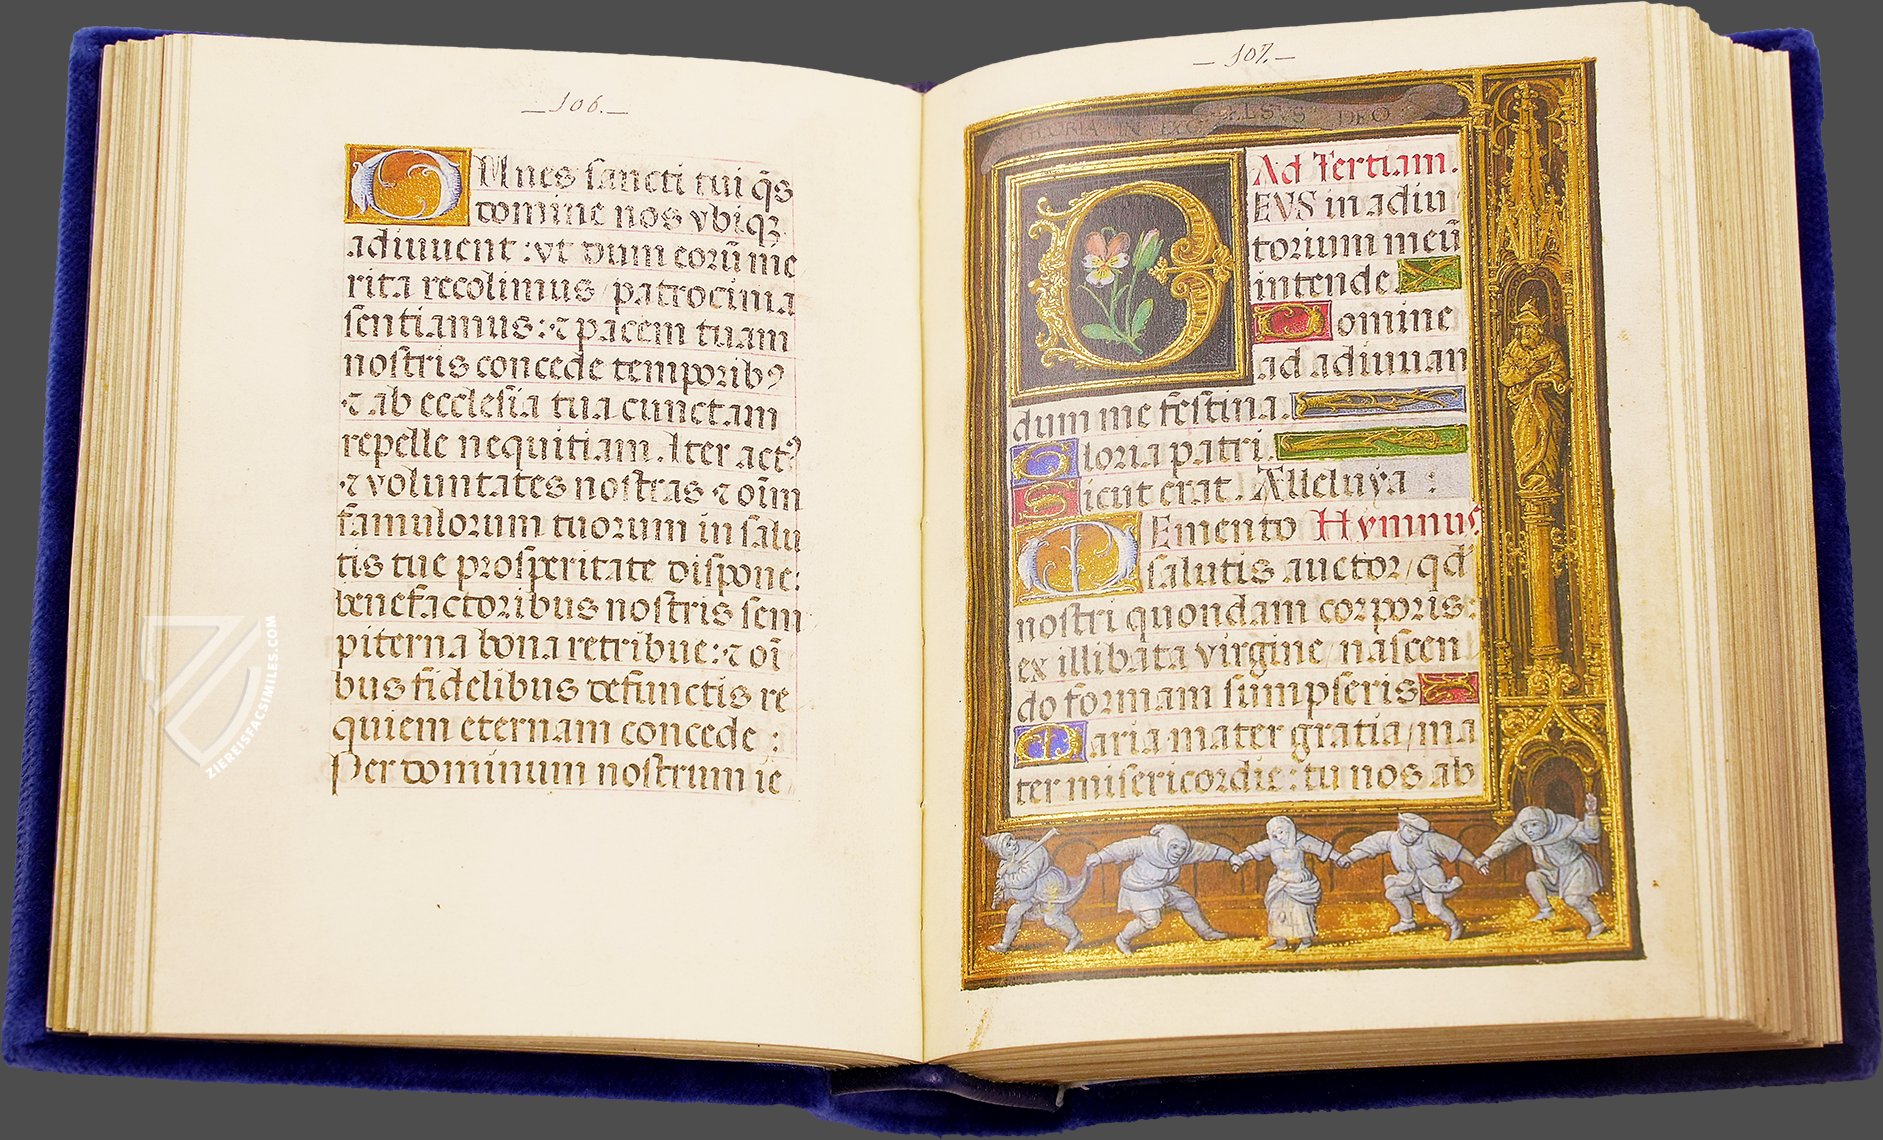 — 106. —
OMnes sancti tui q̃s
domine nos vbiqȝ
adiuuent : vt dum eorū me
rita recolimus / patrocinia
sentiamus : ⁊ pacem tuam
nostris concede temporibꝰ
⁊ ab ecclesia tua cunctam
repelle nequitiam . Iter actꝰ
⁊ voluntates nostras ⁊ oīm
famulorum tuorum in salu
tis tue prosperitate dispone :
benefactoribus nostris sem
piterna bona retribue : ⁊ oī
bus fidelibus defunctis re
quiem eternam concede :
Per dominum nostrum ie
— 107. —
GLORIA IN EXCELSVS DEO
Ad Tertiam .
DEVS in adiu
torium meū
intende .
Domine
ad adiuuan
dum me festina .
Gloria patri .
Sicut erat . Alleluya :
MEmento Hymnus
salutis auctor / qd̄
nostri quondam corporis :
ex illibata virgine / nascen
do formam sumpseris
Maria mater gratia / ma
ter misericordie : tu nos ab
ZIEREISFACSIMILES.COM